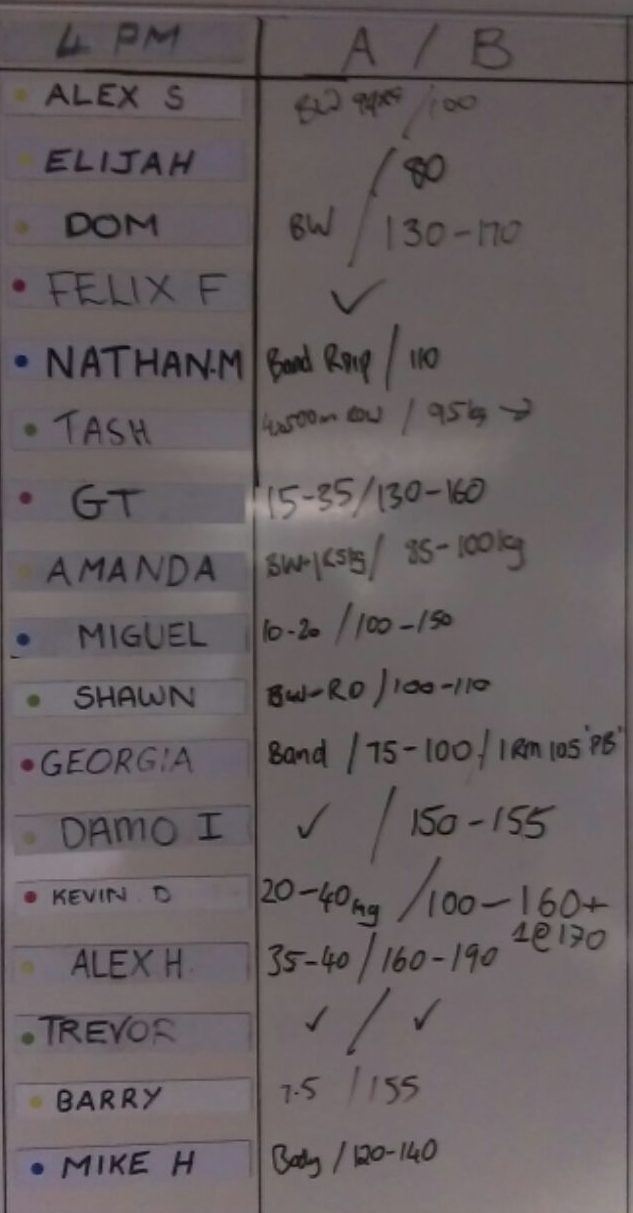 4 PM A / B
ALEX S BW /100
ELIJAH / 80
DOM BW / 130-170
FELIX F ✓
NATHAN.M Band / 110
TASH 4x500m row / 95kg →
GT 15-35/130-160
AMANDA BW- / 85-100kg
MIGUEL 10-20 /100-150
SHAWN BW-RO /100-110
GEORGIA Band / 75-100 / 1RM 105 "PB"
DAMO I ✓ / 150-155
KEVIN D 20-40kg /100-160+
1@170
ALEX H 35-40/160-190
TREVOR ✓ / ✓
BARRY 7.5 /155
MIKE H Body /120-140